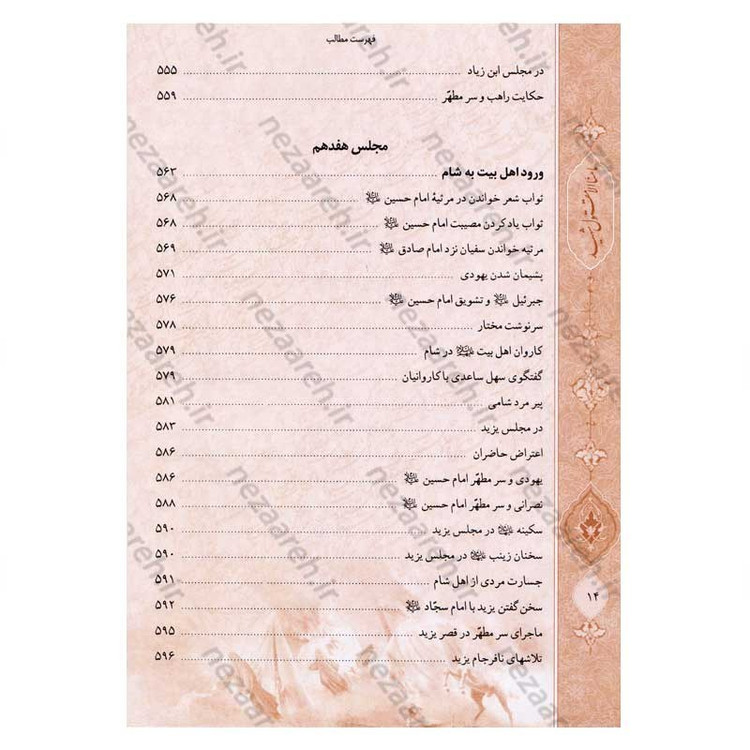 فهرست مطالب
در مجلس ابن زیاد ۵۵۵
حکایت راهب و سر مطهّر ۵۵۹
مجلس هفدهم
ورود اهل بیت به شام ۵۶۳
ثواب شعر خواندن در مرثیهٔ امام حسین ۵۶۸
ثواب یاد کردن مصیبت امام حسین ۵۶۸
مرثیه خواندن سفیان نزد امام صادق ۵۶۹
پشیمان شدن یهودی ۵۷۱
جبرئیل و تشویق امام حسین ۵۷۶
سرنوشت مختار ۵۷۸
کاروان اهل بیت در شام ۵۷۹
گفتگوی سهل ساعدی با کاروانیان ۵۷۹
پیر مرد شامی ۵۸۱
در مجلس یزید ۵۸۳
اعتراض حاضران ۵۸۶
یهودی و سر مطهّر امام حسین ۵۸۶
نصرانی و سر مطهّر امام حسین ۵۸۸
سکینه در مجلس یزید ۵۹۰
سخنان زینب در مجلس یزید ۵۹۰
جسارت مردی از اهل شام ۵۹۱
سخن گفتن یزید با امام سجّاد ۵۹۲
ماجرای سر مطهّر در قصر یزید ۵۹۵
تلاشهای نافرجام یزید ۵۹۶
۱۴
nezaareh.ir